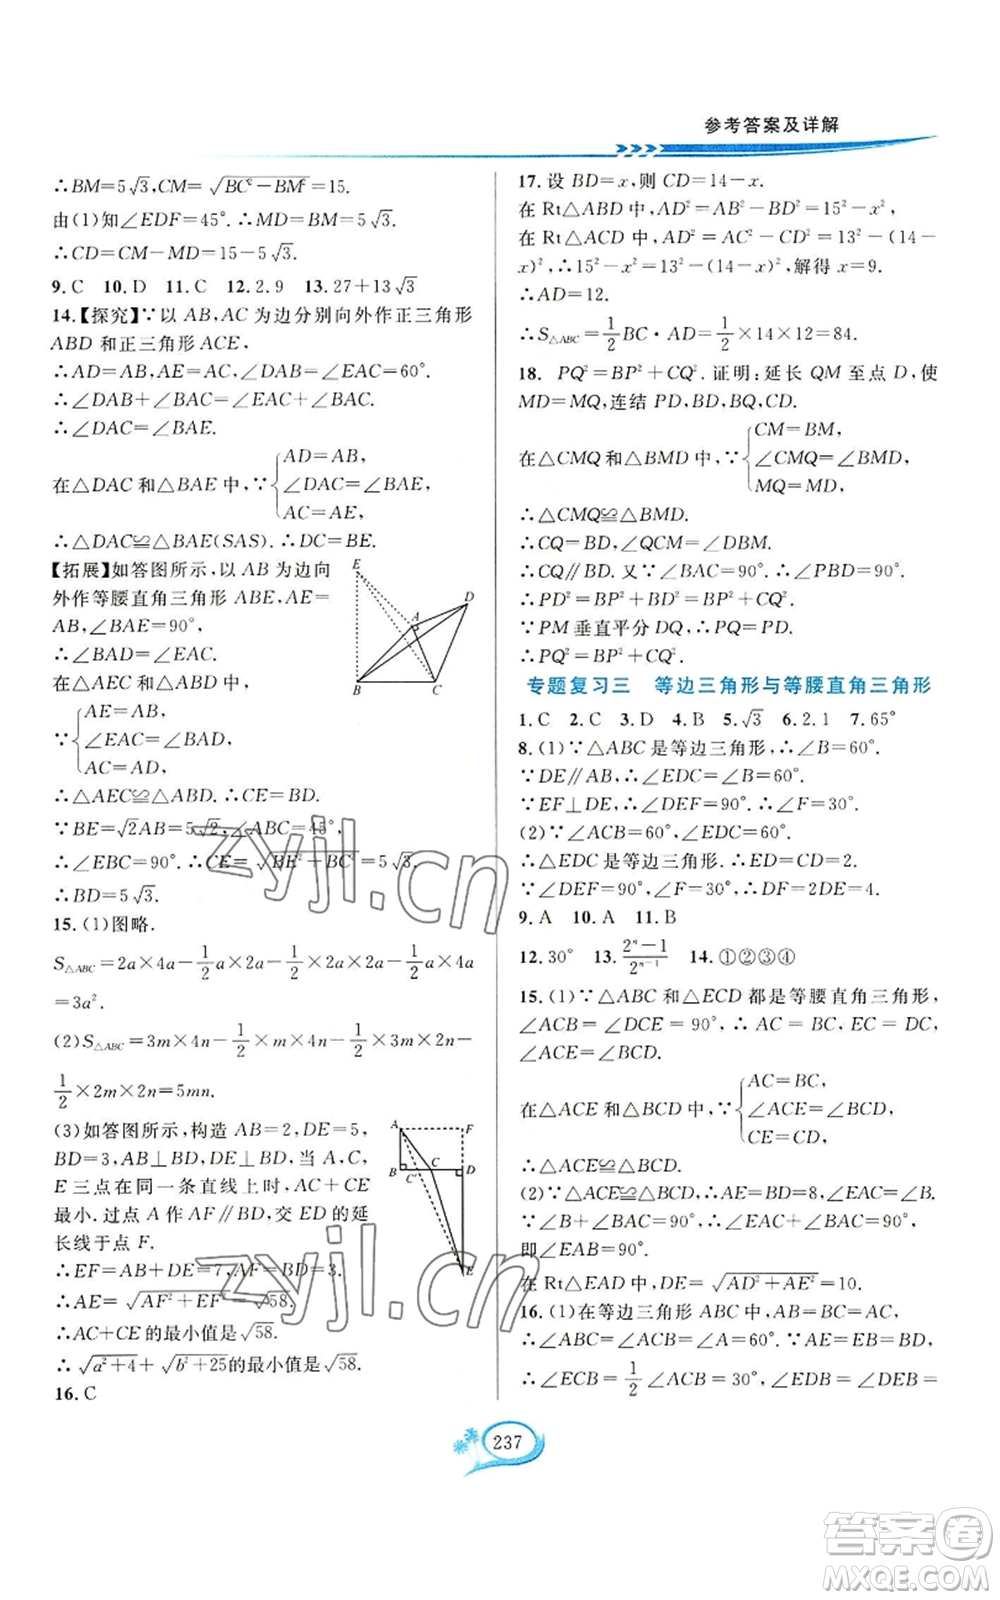 参考答案及详解
∴BM=5√3,CM=√(BC²-BM²)=15.
由(1)知∠EDF=45°.∴MD=BM=5√3.
∴CD=CM-MD=15-5√3.
9.C 10.D 11.C 12.2.9 13.27+13√3
14.【探究】∵以 AB,AC 为边分别向外作正三角形
ABD 和正三角形 ACE,
∴AD=AB,AE=AC,∠DAB=∠EAC=60°.
∴∠DAB+∠BAC=∠EAC+∠BAC.
∴∠DAC=∠BAE.
AD=AB,
在△DAC 和△BAE 中,∵{∠DAC=∠BAE,
AC=AE,
∴△DAC≌△BAE(SAS).∴DC=BE.
【拓展】如答图所示,以 AB 为边向
外作等腰直角三角形 ABE,AE=
AB,∠BAE=90°,
∴∠BAD=∠EAC.
在△AEC 和△ABD 中,
AE=AB,
∵{∠EAC=∠BAD,
AC=AD,
∴△AEC≌△ABD.∴CE=BD.
∵BE=√2AB=5√2,∠ABC=∠ABE=45°,
∴∠EBC=90°.∴CE=√(BE²+BC²)=5√3.
∴BD=5√3.
E
D
A
B
C
15.(1)图略.
S△ABC=2a×4a-1/2a×2a-1/2×2a×2a-1/2a×4a
=3a².
(2)S△ABC=3m×4n-1/2×m×4n-1/2×3m×2n-
1/2×2m×2n=5mn.
(3)如答图所示,构造 AB=2,DE=5,
BD=3,AB⊥BD,DE⊥BD,当 A,C,
E 三点在同一条直线上时,AC+CE
最小.过点 A 作 AF∥BD,交 ED 的延
长线于点 F.
∴EF=AB+DE=7,AF=BD=3.
∴AE=√(AF²+EF²)=√58.
∴AC+CE 的最小值是√58.
∴√(a²+4)+√(b²+25)的最小值是√58.
A
F
B
C'
C
D
E
16.C
17.设 BD=x,则 CD=14-x.
在 Rt△ABD 中,AD²=AB²-BD²=15²-x²,
在 Rt△ACD 中,AD²=AC²-CD²=13²-(14-
x)²,∴15²-x²=13²-(14-x)²,解得 x=9.
∴AD=12.
∴S△ABC=1/2BC·AD=1/2×14×12=84.
18. PQ²=BP²+CQ².证明:延长 QM 至点 D,使
MD=MQ,连结 PD,BD,BQ,CD.
CM=BM,
在△CMQ 和△BMD 中,∵{∠CMQ=∠BMD,
MQ=MD,
∴△CMQ≌△BMD.
∴CQ=BD,∠QCM=∠DBM.
∴CQ∥BD.又∵∠BAC=90°,∴∠ABD=90°.
∴PD²=BP²+BD²=BP²+CQ².
∵PM 垂直平分 DQ,∴PQ=PD.
∴PQ²=BP²+CQ².
专题复习三 等边三角形与等腰直角三角形
1.C 2.C 3.D 4.B 5.√3 6.2.1 7.65°
8.(1)∵△ABC 是等边三角形,∴∠B=60°.
∵DE∥AB,∴∠EDF=∠B=60°.
∵EF⊥DE,∴∠DEF=90°.∴∠F=30°.
(2)∵∠ACB=60°,∠EDC=60°.
∴△EDC 是等边三角形.∴ED=CD=2.
∵∠DEF=90°,∠F=30°,∴DF=2DE=4.
9.A 10.A 11.B
12.30° 13.(2ⁿ-1)/2ⁿ⁻¹ 14.①②③④
15.(1)∵△ABC 和△ECD 都是等腰直角三角形,
∠ACB=∠DCE=90°,∴AC=BC,EC=DC,
∠ACE=∠BCD.
AC=BC,
在△ACE 和△BCD 中,∵{∠ACE=∠BCD,
CE=CD,
∴△ACE≌△BCD.
(2)∵△ACE≌△BCD,∴AE=BD=8,∠EAC=∠B.
∵∠B+∠BAC=90°,∴∠EAC+∠BAC=90°,
即∠EAB=90°.
在 Rt△EAD 中,DE=√(AD²+AE²)=10.
16.(1)在等边三角形 ABC 中,AB=BC=AC,
∴∠ABC=∠ACB=∠A=60°.
∴∠ECB=1/2∠ACB=30°,∠EDB=∠DEB=
237
zyjl.cn
zyjl.cn
答案卷
MXQE.COM